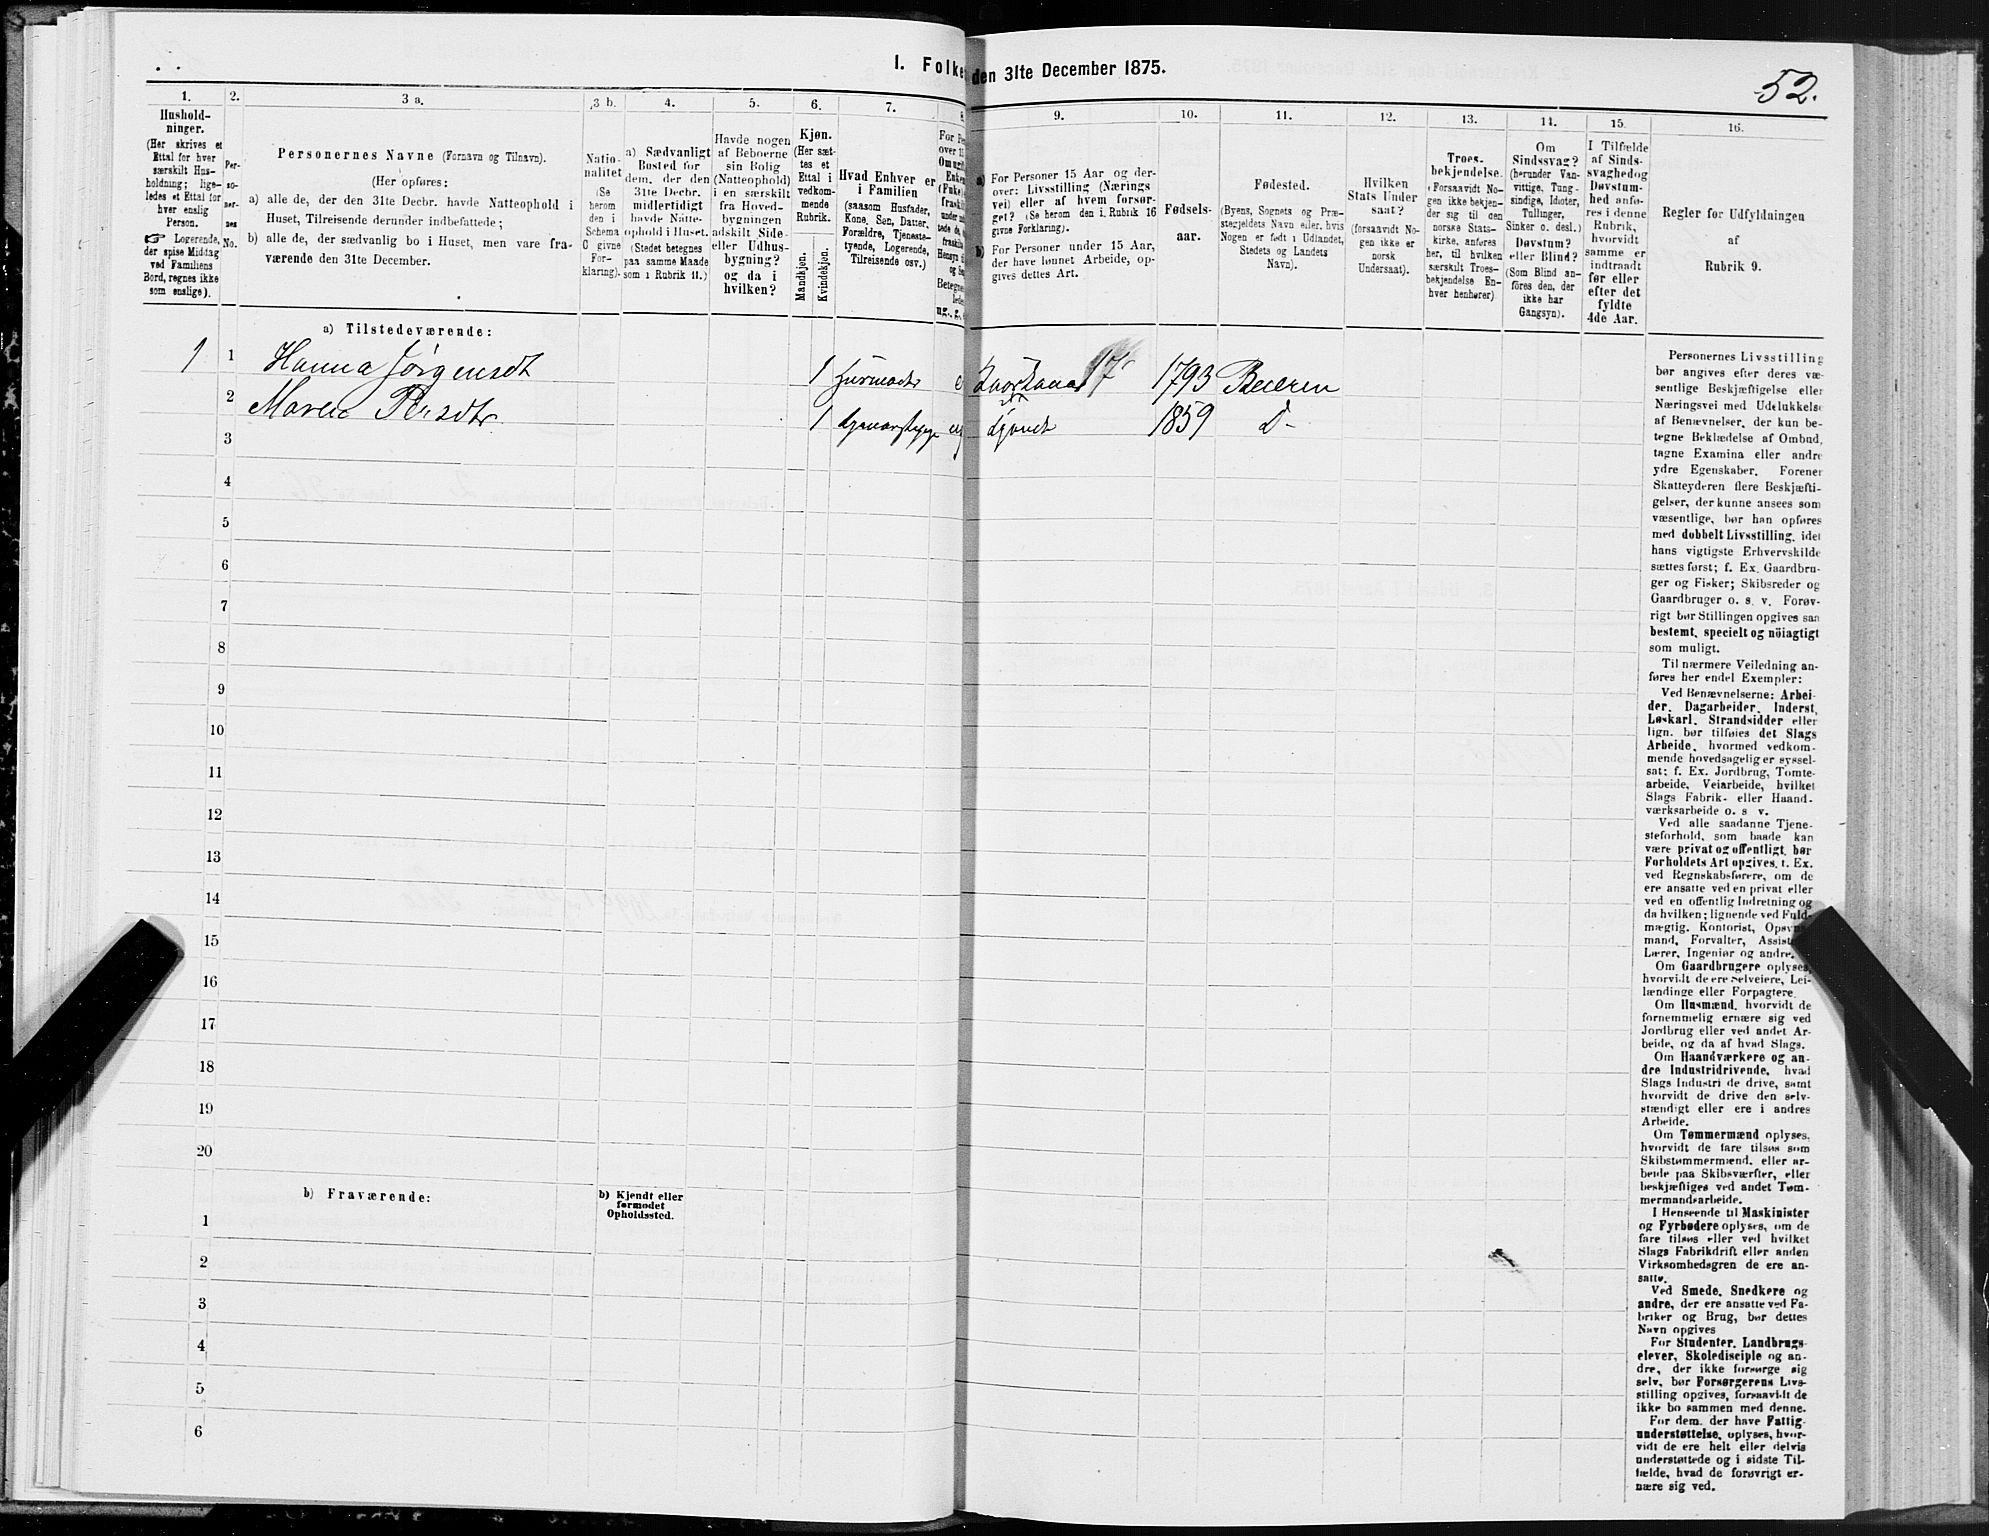 I. Folke den 31te December 1875.
52.
1. 2. 3 a. 3 b. 4. 5. 6. 7. 8. 9. 10. 11. 12. 13. 14. 15. 16.
Hushold-
ninger.
(Her skrives et
Ettal for hver
særskilt Hus-
holdning; lige-
ledes et Ettal for
hver enslig
Person.
☞ Logerende,
der spise Middag
ved Familiens
Bord, regnes ikke
som enslige).
Per-
so-
ner-
nes
No.
Personernes Navne (Fornavn og Tilnavn).
(Her opføres:
a) alle de, der den 31te Decbr. havde Natteophold i
Huset, Tilreisende derunder indbefattede;
b) alle de, der sædvanlig bo i Huset, men vare fra-
værende den 31te December.
Natio-
nalitet
(Se
herom
den i
Schema
C givne
For-
klaring).
a) Sædvanligt
Bosted for
dem, der den
31te Decbr.
midlertidigt
havde Natte-
ophold i Huset.
(Stedet betegnes
paa samme Maade
som i Rubrik 11.)
Havde nogen
af Beboerne
sin Bolig
(Natteophold)
i en særskilt
fra Hoved-
bygningen
adskilt Side-
eller Udhus-
bygning?
og da i
hvilken?
Kjøn.
(Her sæt-
tes et
Ettal i
vedkom-
mende
Rubrik.
Mandkjøn.
Kvindekjøn.
Hvad Enhver er
i Familien
(saasom Husfader,
Kone, Søn, Datter,
Forældre, Tjeneste-
tyende, Logerende,
Tilreisende osv.)
a) For Personer 15 Aar og der-
over: Livsstilling (Nærings
vei) eller af hvem forsør-
get? (Se herom den i Rubrik 16
givne Forklaring).
b) For Personer under 15 Aar,
der have lønnet Arbeide, op-
gives dettes Art.
Fødsels-
aar.
Fødested.
(Byens, Sognets og Præ-
stegjeldets Navn eller, hvis
Nogen er født i Udlandet,
Stedets og Landets
Navn).
Hvilken
Stats Under
saat?
(forsaavidt No-
gen ikke er
norsk
Undersaat).
Troes-
bekjendelse.
(Forsaavidt No-
gen ikke bekjen-
der sig til den
norske Stats-
kirke, anføres
her, til hvilken
særskilt Troes-
bekjendelse En-
hver henhører)
Om
Sindssvag?
(herunder Van-
vittige, Tung-
sindige, Idioter,
Tullinger,
Sinker o. desl.)
Døvstum?
eller Blind?
(Som Blind an-
føres den, der
ikke har
Gangsyn).
I Tilfælde
af Sinds-
svaghed og
Døvstum-
hed anfø-
res i denne
Rubrik,
hvorvidt
samme er
indtraadt
før eller
efter det
fyldte
4de Aar.
Regler for Udfyldningen
af
Rubrik 9.
a) Tilstedeværende:
1 1 Hanna Jørgensdt 1 1793 Beieren
2 Maren Persdtr 1 1859 D-
3
4
5
6
7
8
9
10
11
12
13
14
15
16
17
18
19
20
b) Fraværende:
b) Kjendt eller
formodet
Opholdssted.
1
2
3
4
5
6
Personernes Livsstilling
bør angives efter deres væ-
sentlige Beskjæftigelse eller
Næringsvei med Udelukkelse
af Benævnelser, der kun be-
tegne Beklædelse af Ombud,
tagne Examina eller andre
ydre Egenskaber. Forener
Skatteyderen flere Beskjæfti-
gelser, der kunne ansees som
væsentlige, bør han opføres
med dobbelt Livsstilling, idet
hans vigtigste Erhvervskilde
sættes først; f. Ex. Gaardbru-
ger og Fisker; Skibsreder og
Gaardbruger o. s. v. Forøv-
rigt bør Stillingen opgives saa
bestemt, specielt og nöiagtigt
som muligt.
Til nærmere Veiledning an-
føres her endel Exempler:
Ved Benævnelserne: Arbei-
der, Dagarbeider, Inderst,
Løskarl, Strandsidder eller
lign. bør tilføies det Slags
Arbeide, hvormed vedkom-
mende hovedsagelig er syssel-
sat; f. Ex. Jordbrug, Tomte-
arbeide, Veiarbeide, hvilket
Slags Fabrik- eller Haand-
værksarbeide o. s v.
Ved alle saadanne Tjene-
steforhold, som baade kan
være privat og offentligt, bør
Forholdets Art opgives, f. Ex.
ved Regnskabsførere, om de
ere ansatte ved en privat eller
ved en offentlig Indretning og
da hvilken; lignende ved Fuld-
mægtig, Kontorist, Opsyns-
mand, Forvalter, Assist
Lærer, Ingeniør og andre.
Om Gaardbrugere oplyses,
hvorvidt de ere Selveiere, Lei-
lændinge eller Forpagtere.
Om Husmænd, hvorvidt de
fornemmelig ernære sig ved
Jordbrug eller ved andet Ar-
beide, og da af hvad Slags.
Om Haandværkere og an-
dre Industridrivende, hvad
Slags Industri de drive, samt
hvorvidt de drive den selv-
stændigt eller ere i andres
Arbeide.
Om Tømmermænd oplyses,
hvorvidt de fare tilsøs som
Skibstømmermænd, eller ar-
beide paa Skibsværfter, eller
beskjæftiges ved andet Tøm-
mermandsarbeide.
I Henseende til Maskinister
og Fyrbødere oplyses, om de
fare tilsøs eller ved hvilket
Slags Fabrikdrift eller anden
Virksomhedsgren de ere an-
satte.
Ved Smede, Snedkere og
andre, der ere ansatte ved Fa-
briker og Brug, bør dettes
Navn opgives
For Studenter, Landbrugs-
elever, Skoledisciple og an-
dre, der ikke forsørge sig
selv, bør Forsørgerens Livs-
stilling opgives, forsaavidt de
ikke bo sammen med denne.
For dem, der have Fattig-
understøttelse, oplyses, hvor-
vidt de ere helt eller delvis
understøttede og i sidste Til-
fælde, hvad de forøvrigt er-
nære sig ved.